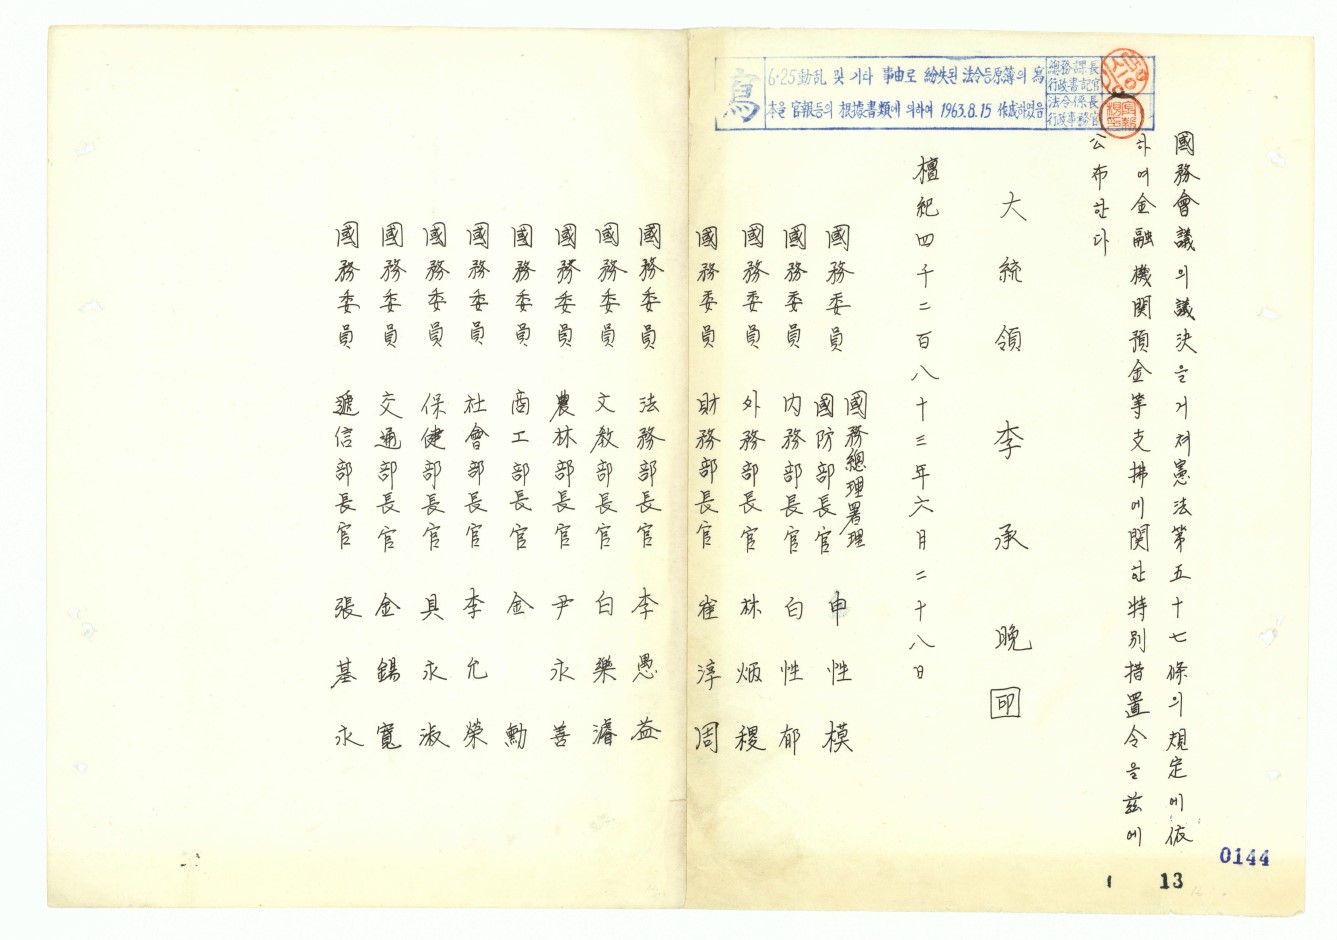 寫
6·25動乱 및 기타 事由로 紛失된 法令등原簿의 寫
本을 官報등의 根據書類에 의하여 1963.8.15 作成하였음
總務課長
行政書記官
法令係長
行政事務官
國務會議의議決을거쳐憲法第五十七條의規定에依
하여金融機関預金等支拂에関한特別措置令을玆에
公布한다
大統領 李承晩 印
檀紀四千二百八十三年六月二十八日
國務總理署理
國務委員 國防部長官 申性模
國務委員 内務部長官 白性郁
國務委員 外務部長官 林炳稷
國務委員 財務部長官 崔淳周
國務委員 法務部長官 李愚益
國務委員 文敎部長官 白樂濬
國務委員 農林部長官 尹永善
國務委員 商工部長官 金勳
國務委員 社會部長官 李允榮
國務委員 保健部長官 具永淑
國務委員 交通部長官 金錫寬
國務委員 遞信部長官 張基永
0144
13